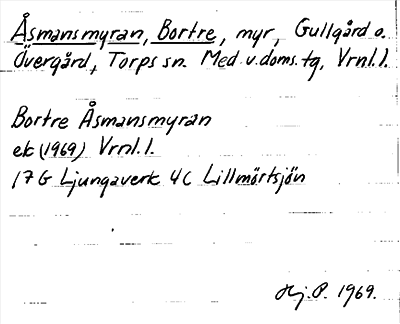 Åsmansmyran, Bortre, myr, Gullgård o.
Övergård, Torps sn. Med. v. doms. tg, Vrnl. l.
Bortre Åsmansmyran
ek (1969) Vrnl. l.
17 G Ljungaverk 4C Lillmörtsjön
Hj. P. 1969.